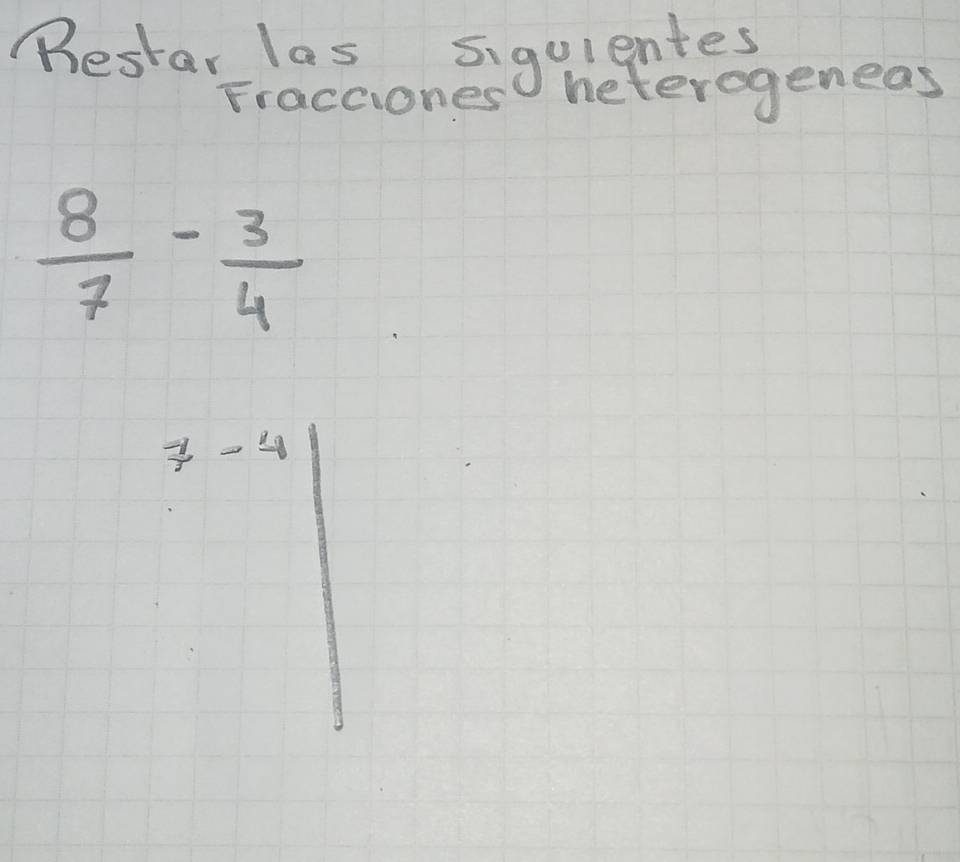 Restar las siguientes
Fracciones heterogeneas
8/7 - 3/4
7 - 4 |